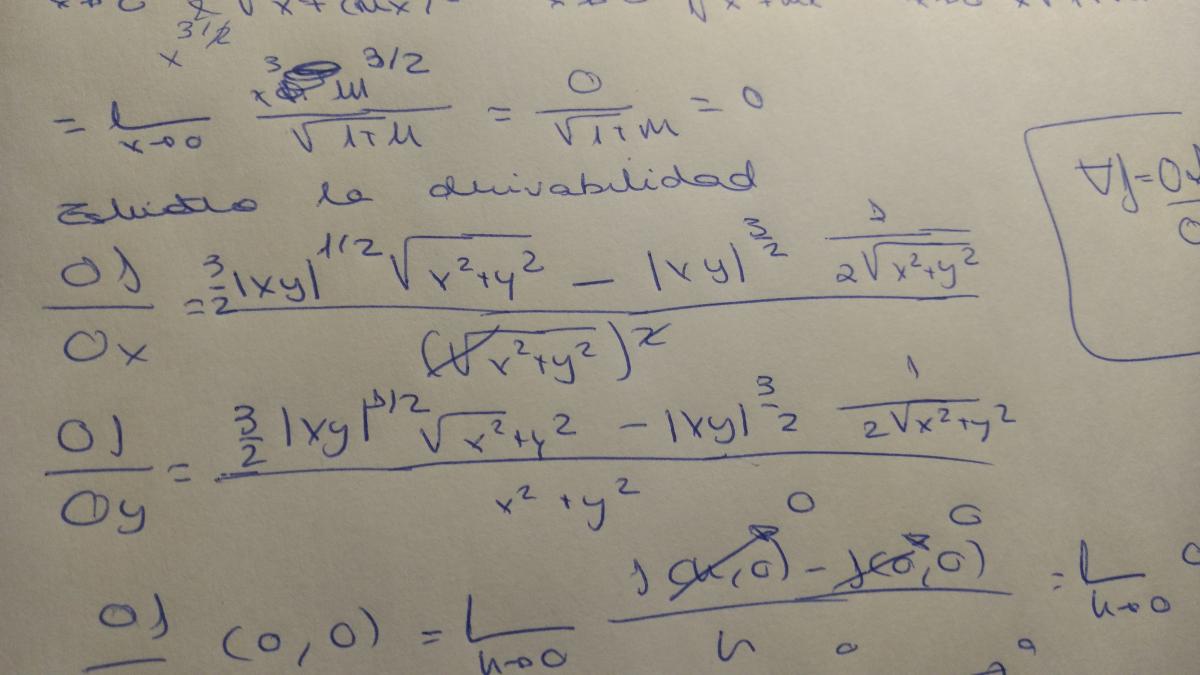 x^{3/2}
= L_{x→0} \frac{x^3 m^{3/2}}{\sqrt{1+m}} = \frac{0}{\sqrt{1+m}} = 0
Estudio la derivabilidad
\frac{∂f}{∂x} = \frac{\frac{3}{2}|xy|^{1/2} \sqrt{x^2+y^2} - |xy|^{\frac{3}{2}} \frac{1}{2\sqrt{x^2+y^2}}}{(\sqrt{x^2+y^2})^2}
\frac{∂f}{∂y} = \frac{\frac{3}{2}|xy|^{1/2} \sqrt{x^2+y^2} - |xy|^{\frac{3}{2}} \frac{1}{2\sqrt{x^2+y^2}}}{x^2+y^2}
\frac{∂f}{} (0,0) = L_{h→0} \frac{f(h,0)^{→0} - f(0,0)^{→0}}{h} = L_{h→0}